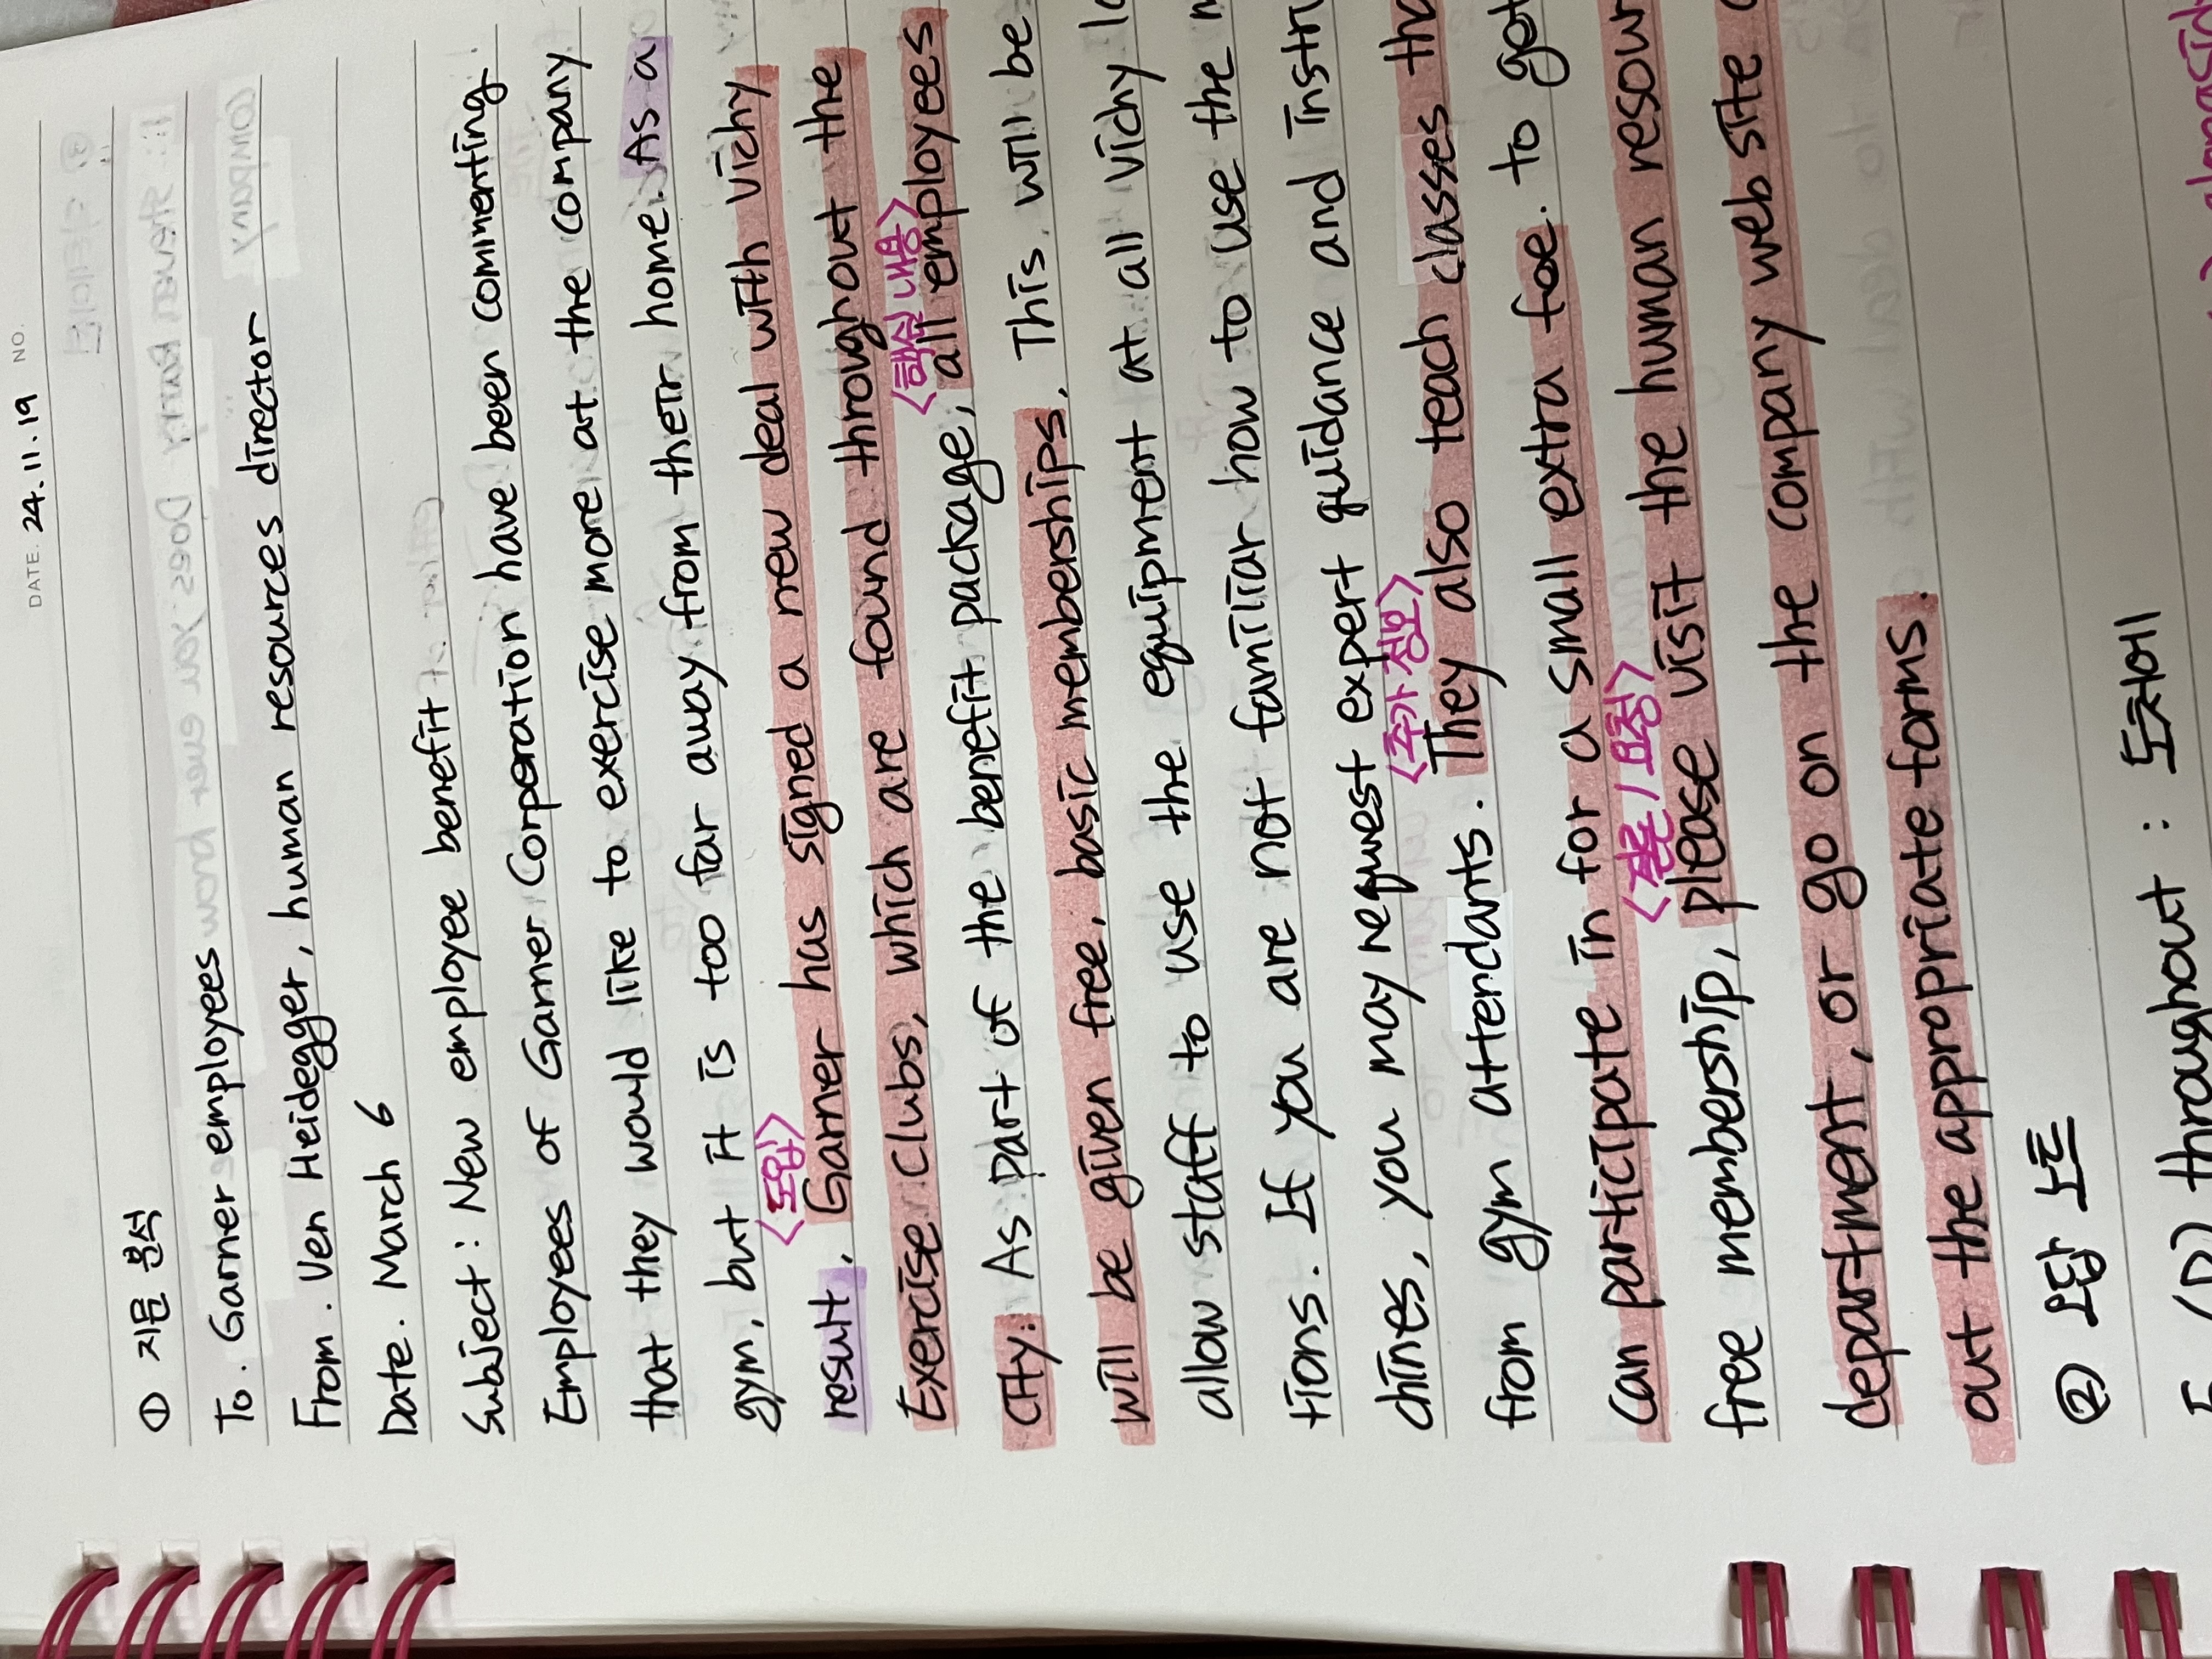 DATE. 24.11.19 NO.
① 지문 분석
To. Garner employees
From. Ven Heidegger, human resources director
Date. March 6
Subject: New employee benefit
Employees of Garner Corporation have been commenting
that they would like to exercise more at the company
gym, but it is too far away from their home. As a
<도입>
result, Garner has signed a new deal with Vichy
Exercise Clubs, which are found throughout the
<핵심 내용>
city. As part of the benefit package, all employees
will be given free, basic memberships. This will be
allow staff to use the equipment at all Vichy lo
tions. If you are not familiar how to use the m
chines, you may request expert guidance and instru
<추가 정보>
from gym attendants. They also teach classes tha
can participate in for a small extra fee. to get
<결론 / 요청>
free membership, please visit the human resour
department, or go on the company web site
out the appropriate forms.
② 오답 노트
(D) throughout : 도처에